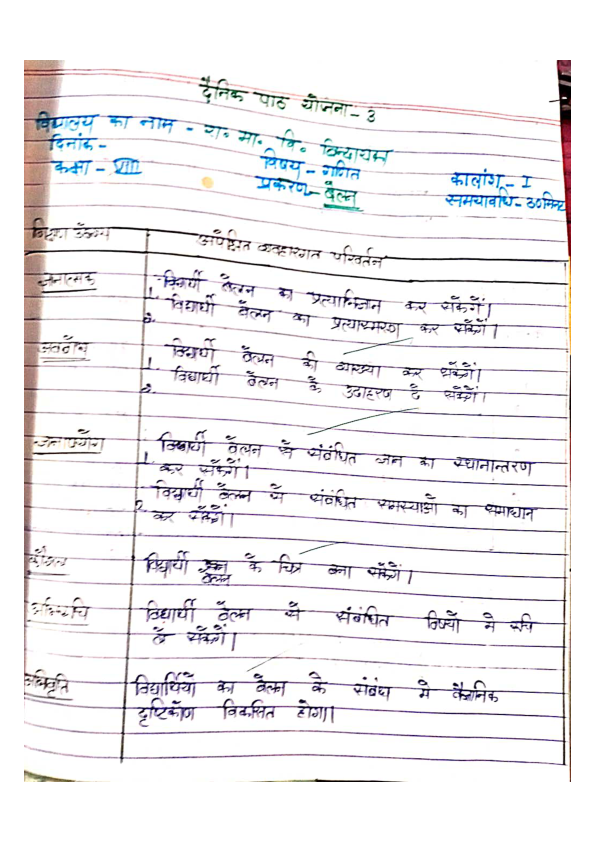 दैनिक पाठ योजना - 3
विद्यालय का नाम - रा. मा. वि. विन्दायका
दिनांक -
विषय - गणित
कालांश - I
कक्षा - VIII
प्रकरण - बेलन
समयावधि - 30 मिनट
शिक्षण उद्देश्य
अपेक्षित व्यवहारगत परिवर्तन
ज्ञानात्मक
1. विद्यार्थी बेलन का प्रत्याभिज्ञान कर सकेंगें।
2. विद्यार्थी बेलन का प्रत्यास्मरण कर सकेंगें।
अवबोध
1. विद्यार्थी बेलन की व्याख्या कर सकेंगें।
2. विद्यार्थी बेलन के उदाहरण दे सकेंगें।
ज्ञानोपयोग
1. विद्यार्थी बेलन से संबंधित ज्ञान का स्थानान्तरण
कर सकेंगें।
2. विद्यार्थी बेलन से संबंधित समस्याओं का समाधान
कर सकेंगें।
कौशल
विद्यार्थी बेलन के चित्र बना सकेंगें।
अभिरूचि
विद्यार्थी बेलन से संबंधित विषयों मे रूचि
ले सकेंगें।
अभिवृति
विद्यार्थियों का बेलन के संबंध मे वैज्ञानिक
दृष्टिकोण विकसित होगा।